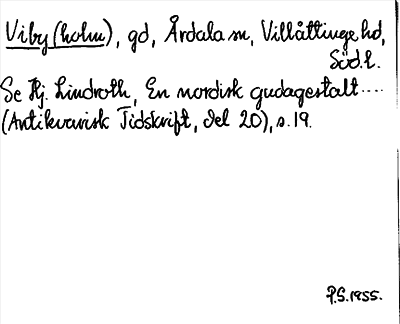 Viby (holm), gd, Årdala sn, Villåttinge hd,
Söd. l.
Se Hj. Lindroth, En nordisk gudagestalt....
(Antikvarisk Tidskrift, del 20), s. 19.
P.S. 1955.